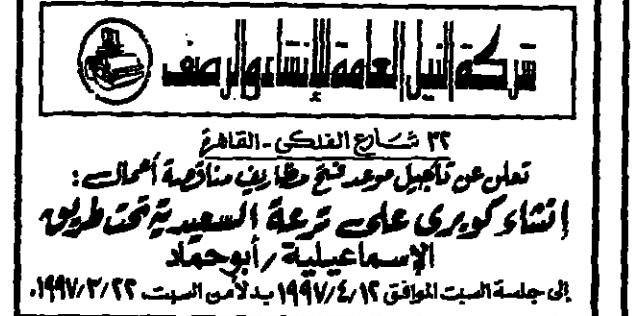 شركة النيل العامة للإنشاء والرصف
٣٢ شارع الفلكى - القاهرة
تعلن عن تأجيل موعد فتح مظاريف مناقصة أعمال :
إنشاء كوبرى على ترعة السعيدية تحت طريق
الإسماعيلية / أبوحماد
إلى جلسة السبت الموافق ١٩٩٧/٤/١٢ بدلاً من السبت ١٩٩٧/٣/٢٢.